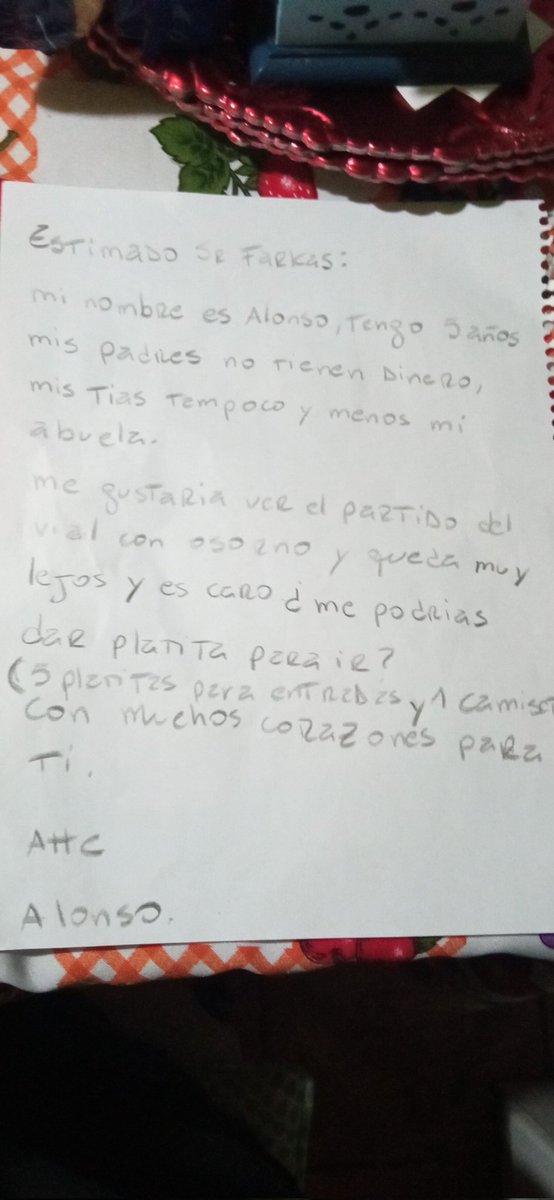 Estimado Sr Farkas:
mi nombre es Alonso, Tengo 5 años
mis padres no Tienen Dinero,
mis Tias Tempoco y menos mi
abuela.
me gustaria ver el partido del
vial con osorno y queda muy
lejos y es caro ¿me podrias
dar platita para ir?
(5 platitas para entradas y 1 camiset
con muchos corazones para
Ti.
Attc
Alonso.